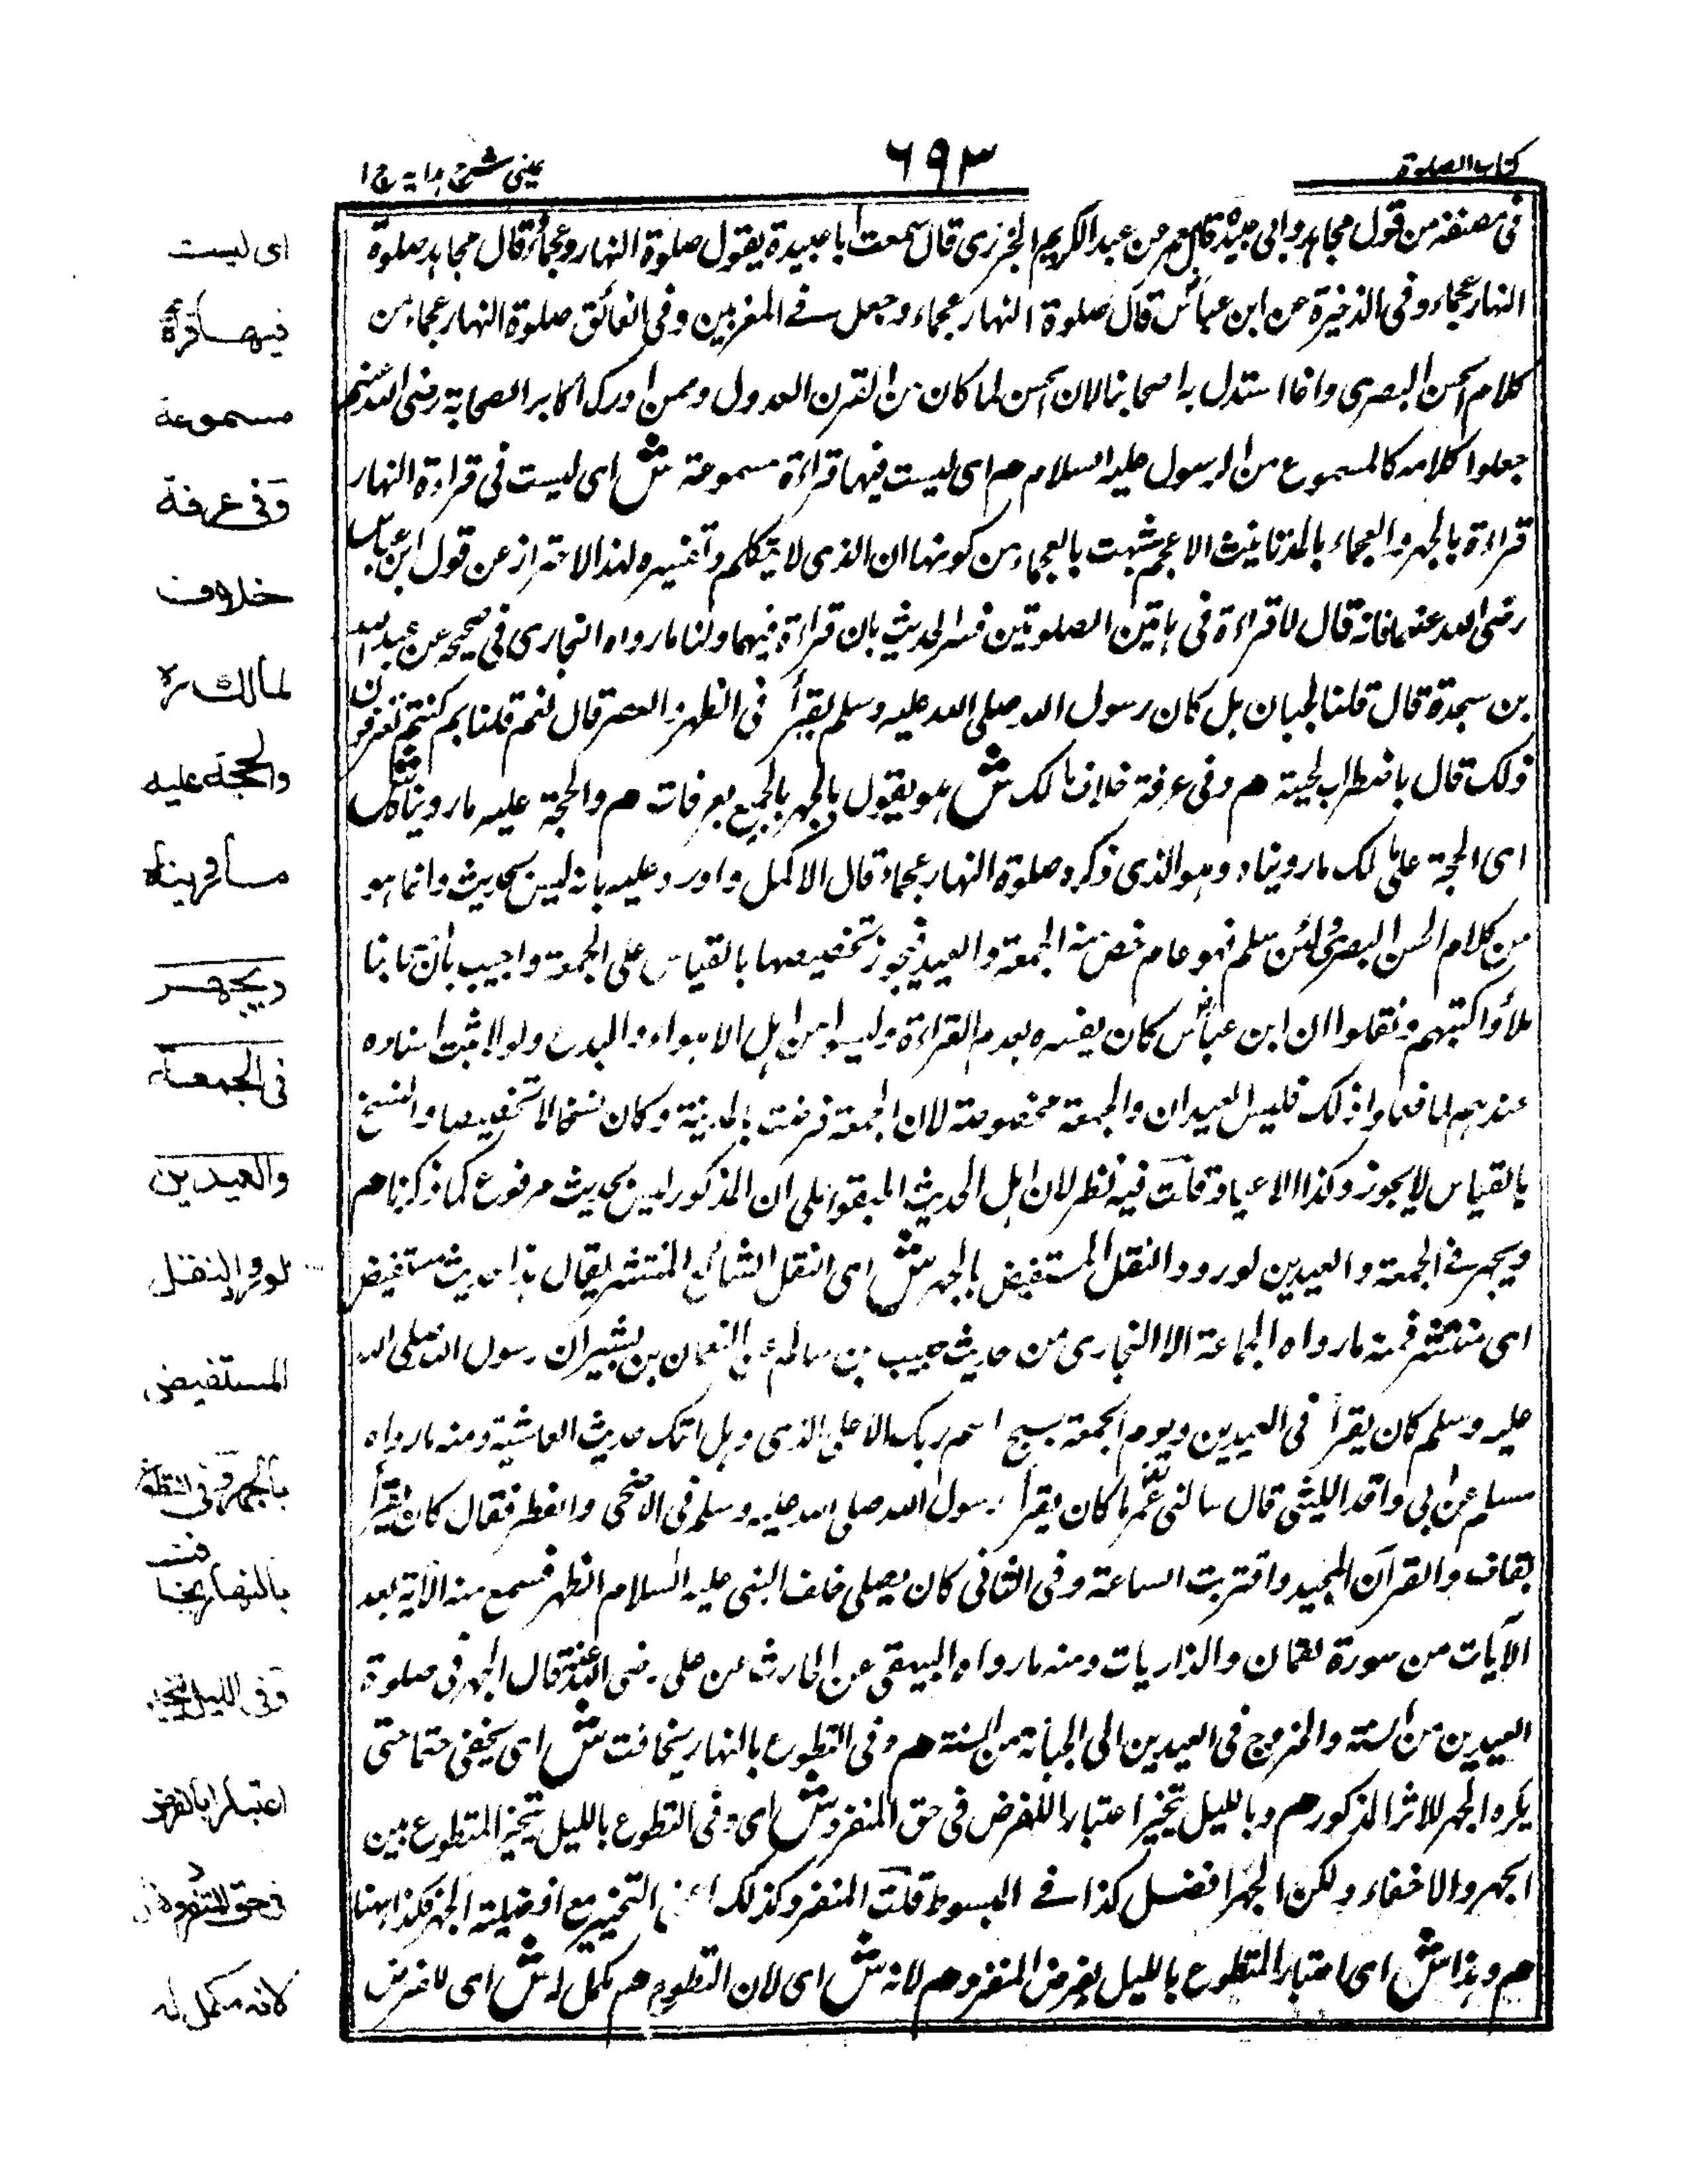 كتاب الصلوة
٦٩٣
عینی شرح ہدایہ ج ا
فی مصنفه من قول مجاہد وابی عبیدة قال معمر عن عبد الکریم الجزری قال سمعت ابا عبیدة یقول صلوة النهار عجماء وقال مجاہد صلوة
النهار عجماء وفی الذخیرة عن ابن عباس قال صلوة النهار عجماء وجعل فی المغربین وفی الفائق صلوة النهار عجماء من
کلام الحسن البصری وانما استدل به اصحابنا لان الحسن لما کان من القرن العدول وممن ادرک اکابر الصحابة رضی الله عنهم
جعلوا کلامه کالمسموع من الرسول علیه السلام م ای لیست فیها قراءة مسموعة ش ای لیست فی قراءة النهار
قراءة بالجهر والعجماء بالمد تانیث الاعجم شبهت بالعجماء من کونها ان الذی لا یتکلم وتفسیره لهذا الاحتراز عن قول ابن عباس
رضی الله عنهما فانه قال لا قراءة فی هاتین الصلوتین فسر الحدیث بان قراءة فیهما ولنا ما رواه البخاری فی صحیحه عن عبد الله
بن سجدة قال قلنا لجبان بل کان رسول الله صلی الله علیه وسلم یقرأ فی الظهر والعصر قال نعم قلنا بم کنتم تعرفون
ذلک قال باضطراب لحیته م وفی عرفة خلاف مالک ش هو یقول بالجهر بالجمیع بعرفات م والحجة علیه ما رویناه ش
ای الحجة علی مالک ما رویناه وهو الذی ذکره صلوة النهار عجماء قال الاکمل واورد علیه بانه لیس بحدیث وانما هو
من کلام الحسن البصری ولئن سلم فهو عام خص منه الجمعة والعید فیجوز تخصیصها بالقیاس علی الجمعة واجیب بان اصحابنا
ملأوا کتبهم ونقلوا ان ابن عباس کان یفسره بعدم القراءة ولیسوا من اهل الاهواء والبدع ولولا ثبت اسناده
عندهم لما فعلوا ذلک فلیس العیدان والجمعة مخصوصة لان الجمعة فرضت بالمدینة وکان نسخا لا تخصیصا والنسخ
بالقیاس لا یجوز وکذا الاعیاد قلت فیه نظر لان اهل الحدیث اطبقوا علی ان المذکور لیس بحدیث مرفوع کما ذکرنا م
ویجهر فی الجمعة والعیدین لورود النقل المستفیض بالجهر ش ای النقل الشائع المنتشر یقال هذا حدیث مستفیض
ای منتشر فمنه ما رواه الجماعة الا البخاری من حدیث حبیب بن سالم عن النعمان بن بشیر ان رسول الله صلی الله
علیه وسلم کان یقرأ فی العیدین ویوم الجمعة بسبح اسم ربک الاعلی الذی وهل اتک حدیث الغاشیة ومنه ما رواه
مسلم عن ابی واقد اللیثی قال سالنی عمر ما کان یقرأ رسول الله صلی الله علیه وسلم فی الاضحی والفطر فقال کان یقرأ
بقاف والقرآن المجید واقتربت الساعة وفی الثانی کان یصلی خلف النبی علیه السلام الظهر فسمع منه الآیة بعد
الآیات من سورة لقمان والذاریات ومنه ما رواه البیهقی عن الحارث عن علی رضی الله عنه قال الجهر فی صلوة
العیدین من السنة والخروج فی العیدین الی الجبانة من السنة م وفی التطوع بالنهار یخافت ش ای یخفی حتما حتی
یکره الجهر للاثر المذکور م وباللیل یتخیر اعتبارا للفرض فی حق المنفرد ش ای وفی التطوع باللیل یتخیر المتطوع بین
الجهر والاخفاء ولکن الجهر افضل کذا فی المبسوط قلت المنفرد کذلک اعنی التخییر مع افضلیته الجهر فکذا ههنا
م وهذا ش ای اعتبار التطوع باللیل بفرض المنفرد م لانه ش ای لان التطوع م مکمل له ش ای للفرض
ای لیست
فیها قراءة
مسموعة
وفی عرفة
خلاف
لمالك رہ
والحجة علیه
ما رویناه
ویجهر
فی الجمعة
والعیدین
لورود النقل
المستفیض
بالجهر وفی التطوع
بالنهار یخافت
وفی اللیل یتخیر
اعتبارا بالفرض
فی حق المنفرد وهذا
لانه مکمل له